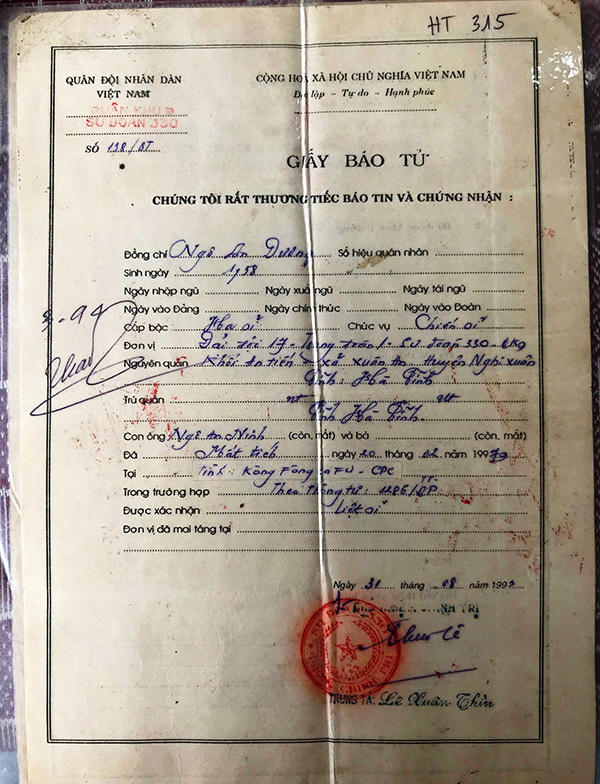 HT 315
QUÂN ĐỘI NHÂN DÂN
VIỆT NAM
CỘNG HOÀ XÃ HỘI CHỦ NGHĨA VIỆT NAM
Độc lập - Tự do - Hạnh phúc
QUÂN KHU 9
SƯ ĐOÀN 330
SỐ 138/BT
GIẤY BÁO TỬ
CHÚNG TÔI RẤT THƯƠNG TIẾC BÁO TIN VÀ CHỨNG NHẬN :
Đồng chí Ngô An Dương Số hiệu quân nhân
Sinh ngày 1958
Ngày nhập ngũ Ngày xuất ngũ Ngày tái ngũ
Ngày vào Đảng Ngày chính thức Ngày vào Đoàn
Cấp bậc Hạ sĩ Chức vụ Chiến sĩ
Đơn vị Đại đội 17 - Trung đoàn 1 - Sư đoàn 330 - QK9
Nguyên quán Khối An tiến - xã Xuân An - huyện Nghi xuân
Tỉnh: Hà Tĩnh
Trú quán nt nt
Tỉnh Hà Tĩnh
Con ông Ngô An Ninh (còn, mất) và bà (còn, mất)
Đã Mất tích ngày 20 tháng 02 năm 1979
Tại Tỉnh: Kông Fông - CPC
Trong trường hợp Theo Thông tư: 1286/QP
Được xác nhận Liệt sĩ
Đơn vị đã mai táng tại
3-94
Ngày 31 tháng 08 năm 1993
CHÍNH TRỊ
TRUNG TÁ: Lê Xuân Thìn